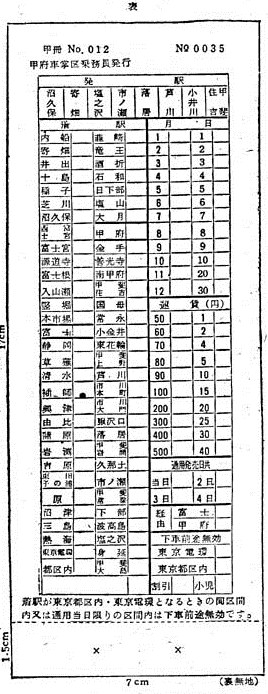 表
甲冊 No. 012 №0035
甲府車掌区乗務員発行
発 駅
沼久保 寄畑 塩之沢 市ノ瀬 落居 芦川 小井川 甲斐住吉
着 駅 月 日
内船 韮崎 1 1
寄畑 竜王 2 2
井出 酒折 3 3
十島 石和 4 4
稲子 日下部 5 5
芝川 塩山 6 6
沼久保 大月 7 7
西富士宮 甲府 8 8
富士宮 金手 9 9
源道寺 善光寺 10 10
富士根 南甲府 11 20
入山瀬 甲斐住吉 12 30
竪堀 国母 運賃(円)
本市場 常永 50 1
富士 小井川 60 2
静岡 東花輪 70 4
草薙 甲斐上野 80 5
清水 芦川 90 10
市川本町 100 15
興津 市川大門 200 20
由比 鰍沢口 300 25
蒲原 落居 400 30
岩渕 甲斐岩間 500 40
吉原 久那土 通用発売日共
東田子の浦 市ノ瀬 当日 2日
原 甲斐常葉 3日 4日
沼津 下部 経由 富士
三島 波高島 甲府
熱海 塩之沢 下車前途無効
東京電環 身延 東京電環
都区内 甲斐大島 東京都区内
割引 小児
着駅が東京都区内・東京電環となるときの同区間
内又は通用当日限りの区間内は下車前途無効です。
1.5cm
7cm (裏無地)